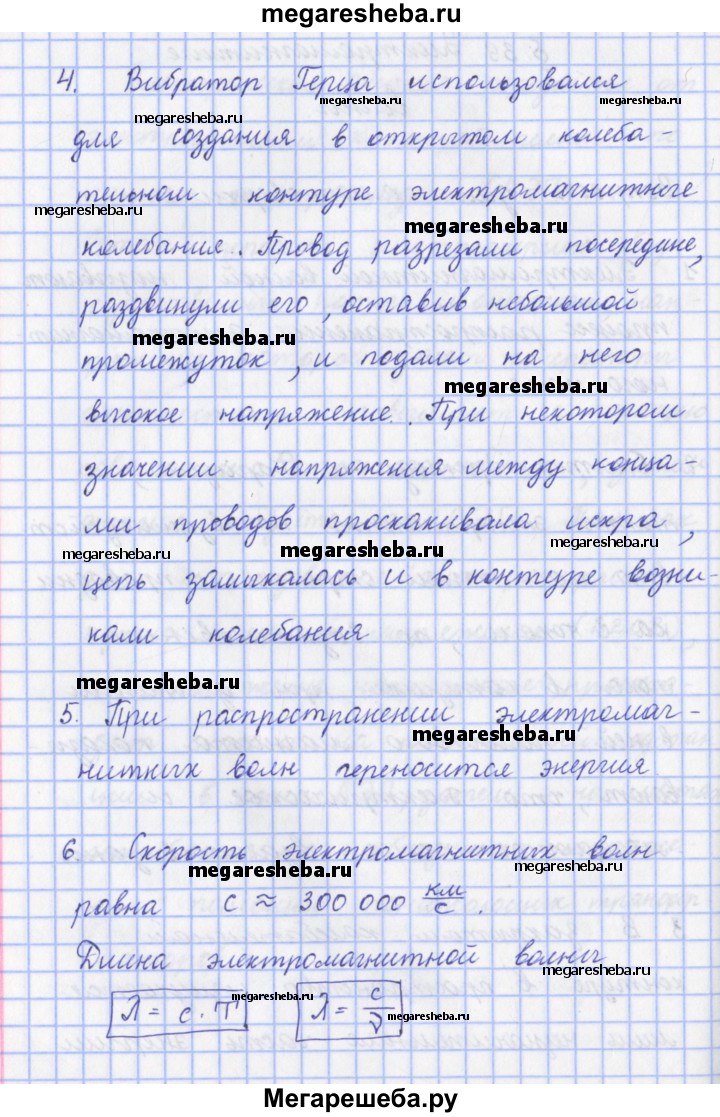 megaresheba.ru
4. Вибратор Герца использовался
megaresheba.ru megaresheba.ru
megaresheba.ru
для создания в открытом колеба-
тельном контуре электромагнитные
megaresheba.ru
megaresheba.ru
колебания. Провод разрезали посередине,
раздвинули его, оставив небольшой
megaresheba.ru
промежуток, и подали на него
megaresheba.ru
высокое напряжение. При некотором
значении напряжения между конца-
ми проводов проскакивала искра,
megaresheba.ru megaresheba.ru megaresheba.ru
цепь замыкалась и в контуре возни-
кали колебания
megaresheba.ru
5. При распространении электромаг-
megaresheba.ru
нитных волн переносится энергия
6. Скорость электромагнитных волн
megaresheba.ru
равна c ≈ 300 000 км/с.
Длина электромагнитной волны
megaresheba.ru
λ = c · T λ = c/ν
megaresheba.ru megaresheba.ru
Мегарешеба.ру